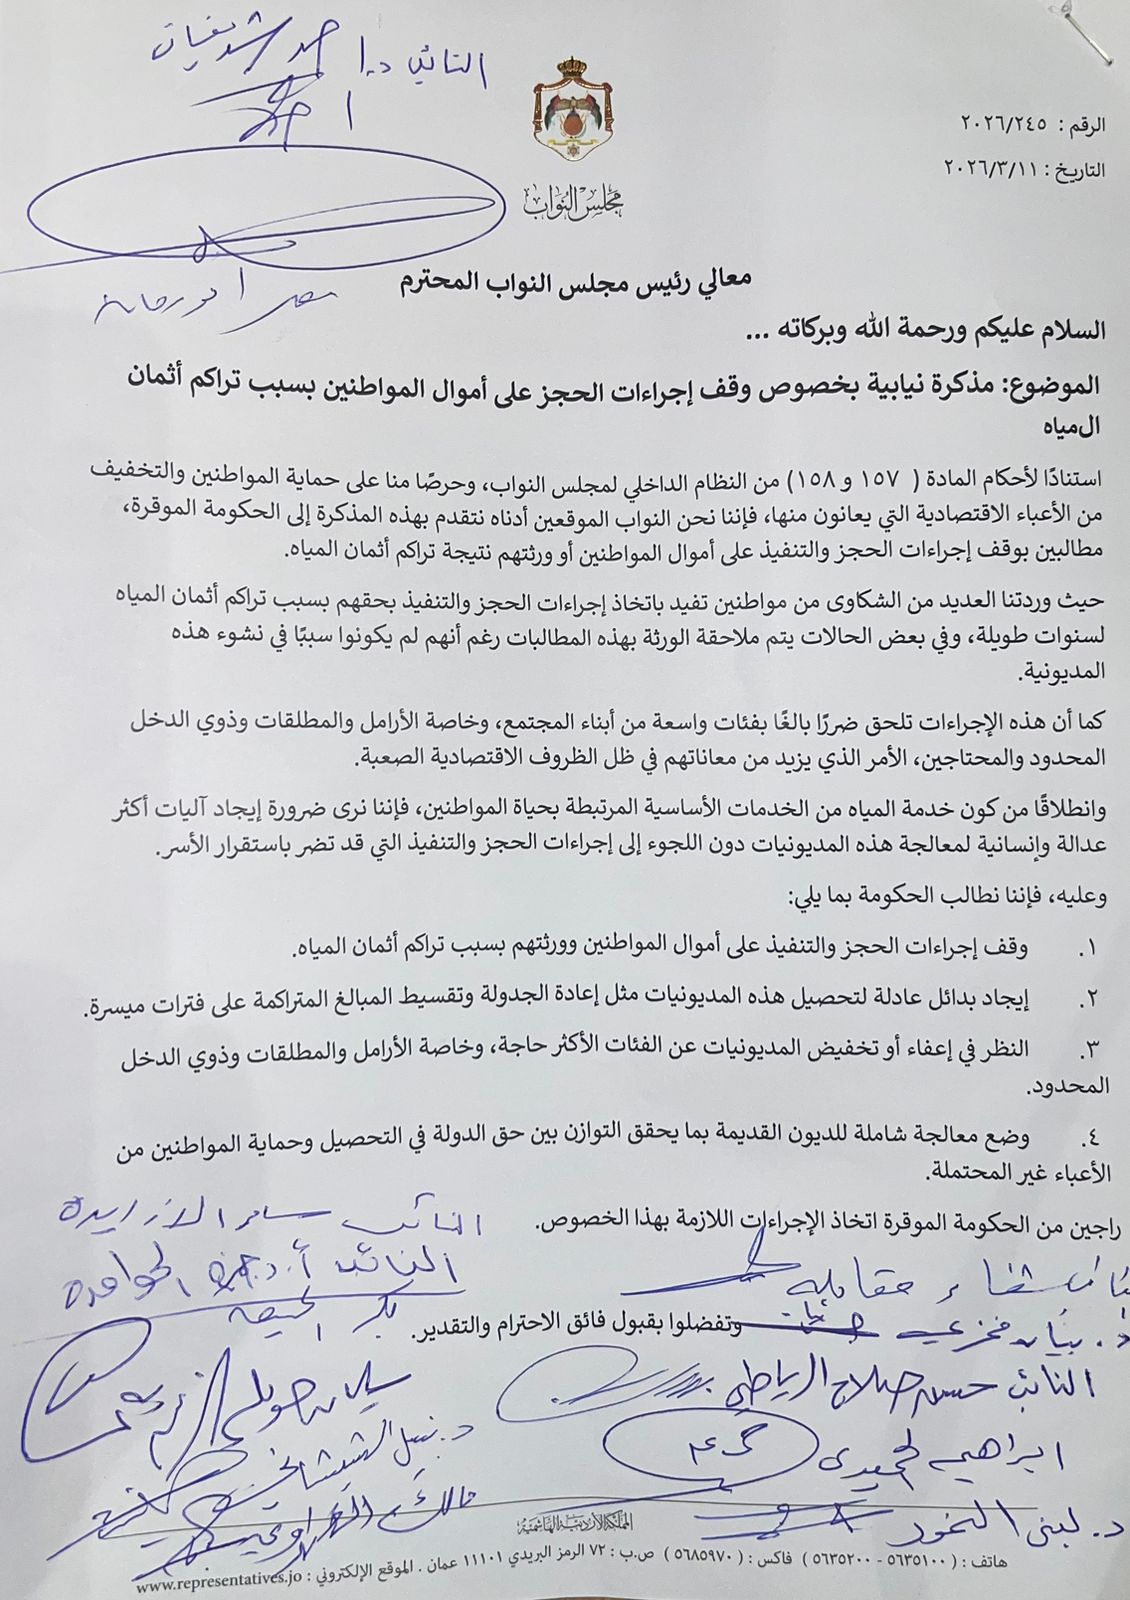 النائب د. احمد شديفات
الرقم : ٢٠٢٦/٢٤٥
التاريخ : ٢٠٢٦/٣/١١
مجلس النواب
معالي رئيس مجلس النواب المحترم
السلام عليكم ورحمة الله وبركاته ...
الموضوع: مذكرة نيابية بخصوص وقف إجراءات الحجز على أموال المواطنين بسبب تراكم أثمان
المياه
استنادًا لأحكام المادة ( ١٥٧ و ١٥٨) من النظام الداخلي لمجلس النواب، وحرصًا منا على حماية المواطنين والتخفيف
من الأعباء الاقتصادية التي يعانون منها، فإننا نحن النواب الموقعين أدناه نتقدم بهذه المذكرة إلى الحكومة الموقرة،
مطالبين بوقف إجراءات الحجز والتنفيذ على أموال المواطنين أو ورثتهم نتيجة تراكم أثمان المياه.
حيث وردتنا العديد من الشكاوى من مواطنين تفيد باتخاذ إجراءات الحجز والتنفيذ بحقهم بسبب تراكم أثمان المياه
لسنوات طويلة، وفي بعض الحالات يتم ملاحقة الورثة بهذه المطالبات رغم أنهم لم يكونوا سببًا في نشوء هذه
المديونية.
كما أن هذه الإجراءات تلحق ضررًا بالغًا بفئات واسعة من أبناء المجتمع، وخاصة الأرامل والمطلقات وذوي الدخل
المحدود والمحتاجين، الأمر الذي يزيد من معاناتهم في ظل الظروف الاقتصادية الصعبة.
وانطلاقًا من كون خدمة المياه من الخدمات الأساسية المرتبطة بحياة المواطنين، فإننا نرى ضرورة إيجاد آليات أكثر
عدالة وإنسانية لمعالجة هذه المديونيات دون اللجوء إلى إجراءات الحجز والتنفيذ التي قد تضر باستقرار الأسر.
وعليه، فإننا نطالب الحكومة بما يلي:
١. وقف إجراءات الحجز والتنفيذ على أموال المواطنين وورثتهم بسبب تراكم أثمان المياه.
٢. إيجاد بدائل عادلة لتحصيل هذه المديونيات مثل إعادة الجدولة وتقسيط المبالغ المتراكمة على فترات ميسرة.
٣. النظر في إعفاء أو تخفيض المديونيات عن الفئات الأكثر حاجة، وخاصة الأرامل والمطلقات وذوي الدخل
المحدود.
٤. وضع معالجة شاملة للديون القديمة بما يحقق التوازن بين حق الدولة في التحصيل وحماية المواطنين من
الأعباء غير المحتملة.
راجين من الحكومة الموقرة اتخاذ الإجراءات اللازمة بهذا الخصوص.
النائب سامر الازايدة
النائب أ.د حمزة الحوامدة
شفاء مقابله
بكر الحيصه
وتفضلوا بقبول فائق الاحترام والتقدير.
د. بيان فخري
النائب حسين صلاح الرياطي
د. نبيل الشيشاني
ابراهيم الحميدي
مالك
د. لبنى النمور
المملكة الأردنية الهاشمية
هاتف : ( ٥٦٣٥١٠٠ - ٥٦٣٥٢٠٠ ) فاكس : ( ٥٦٨٥٩٧٠ ) ص.ب : ٧٢ الرمز البريدي ١١١٠١ عمان . الموقع الإلكتروني : www.representatives.jo